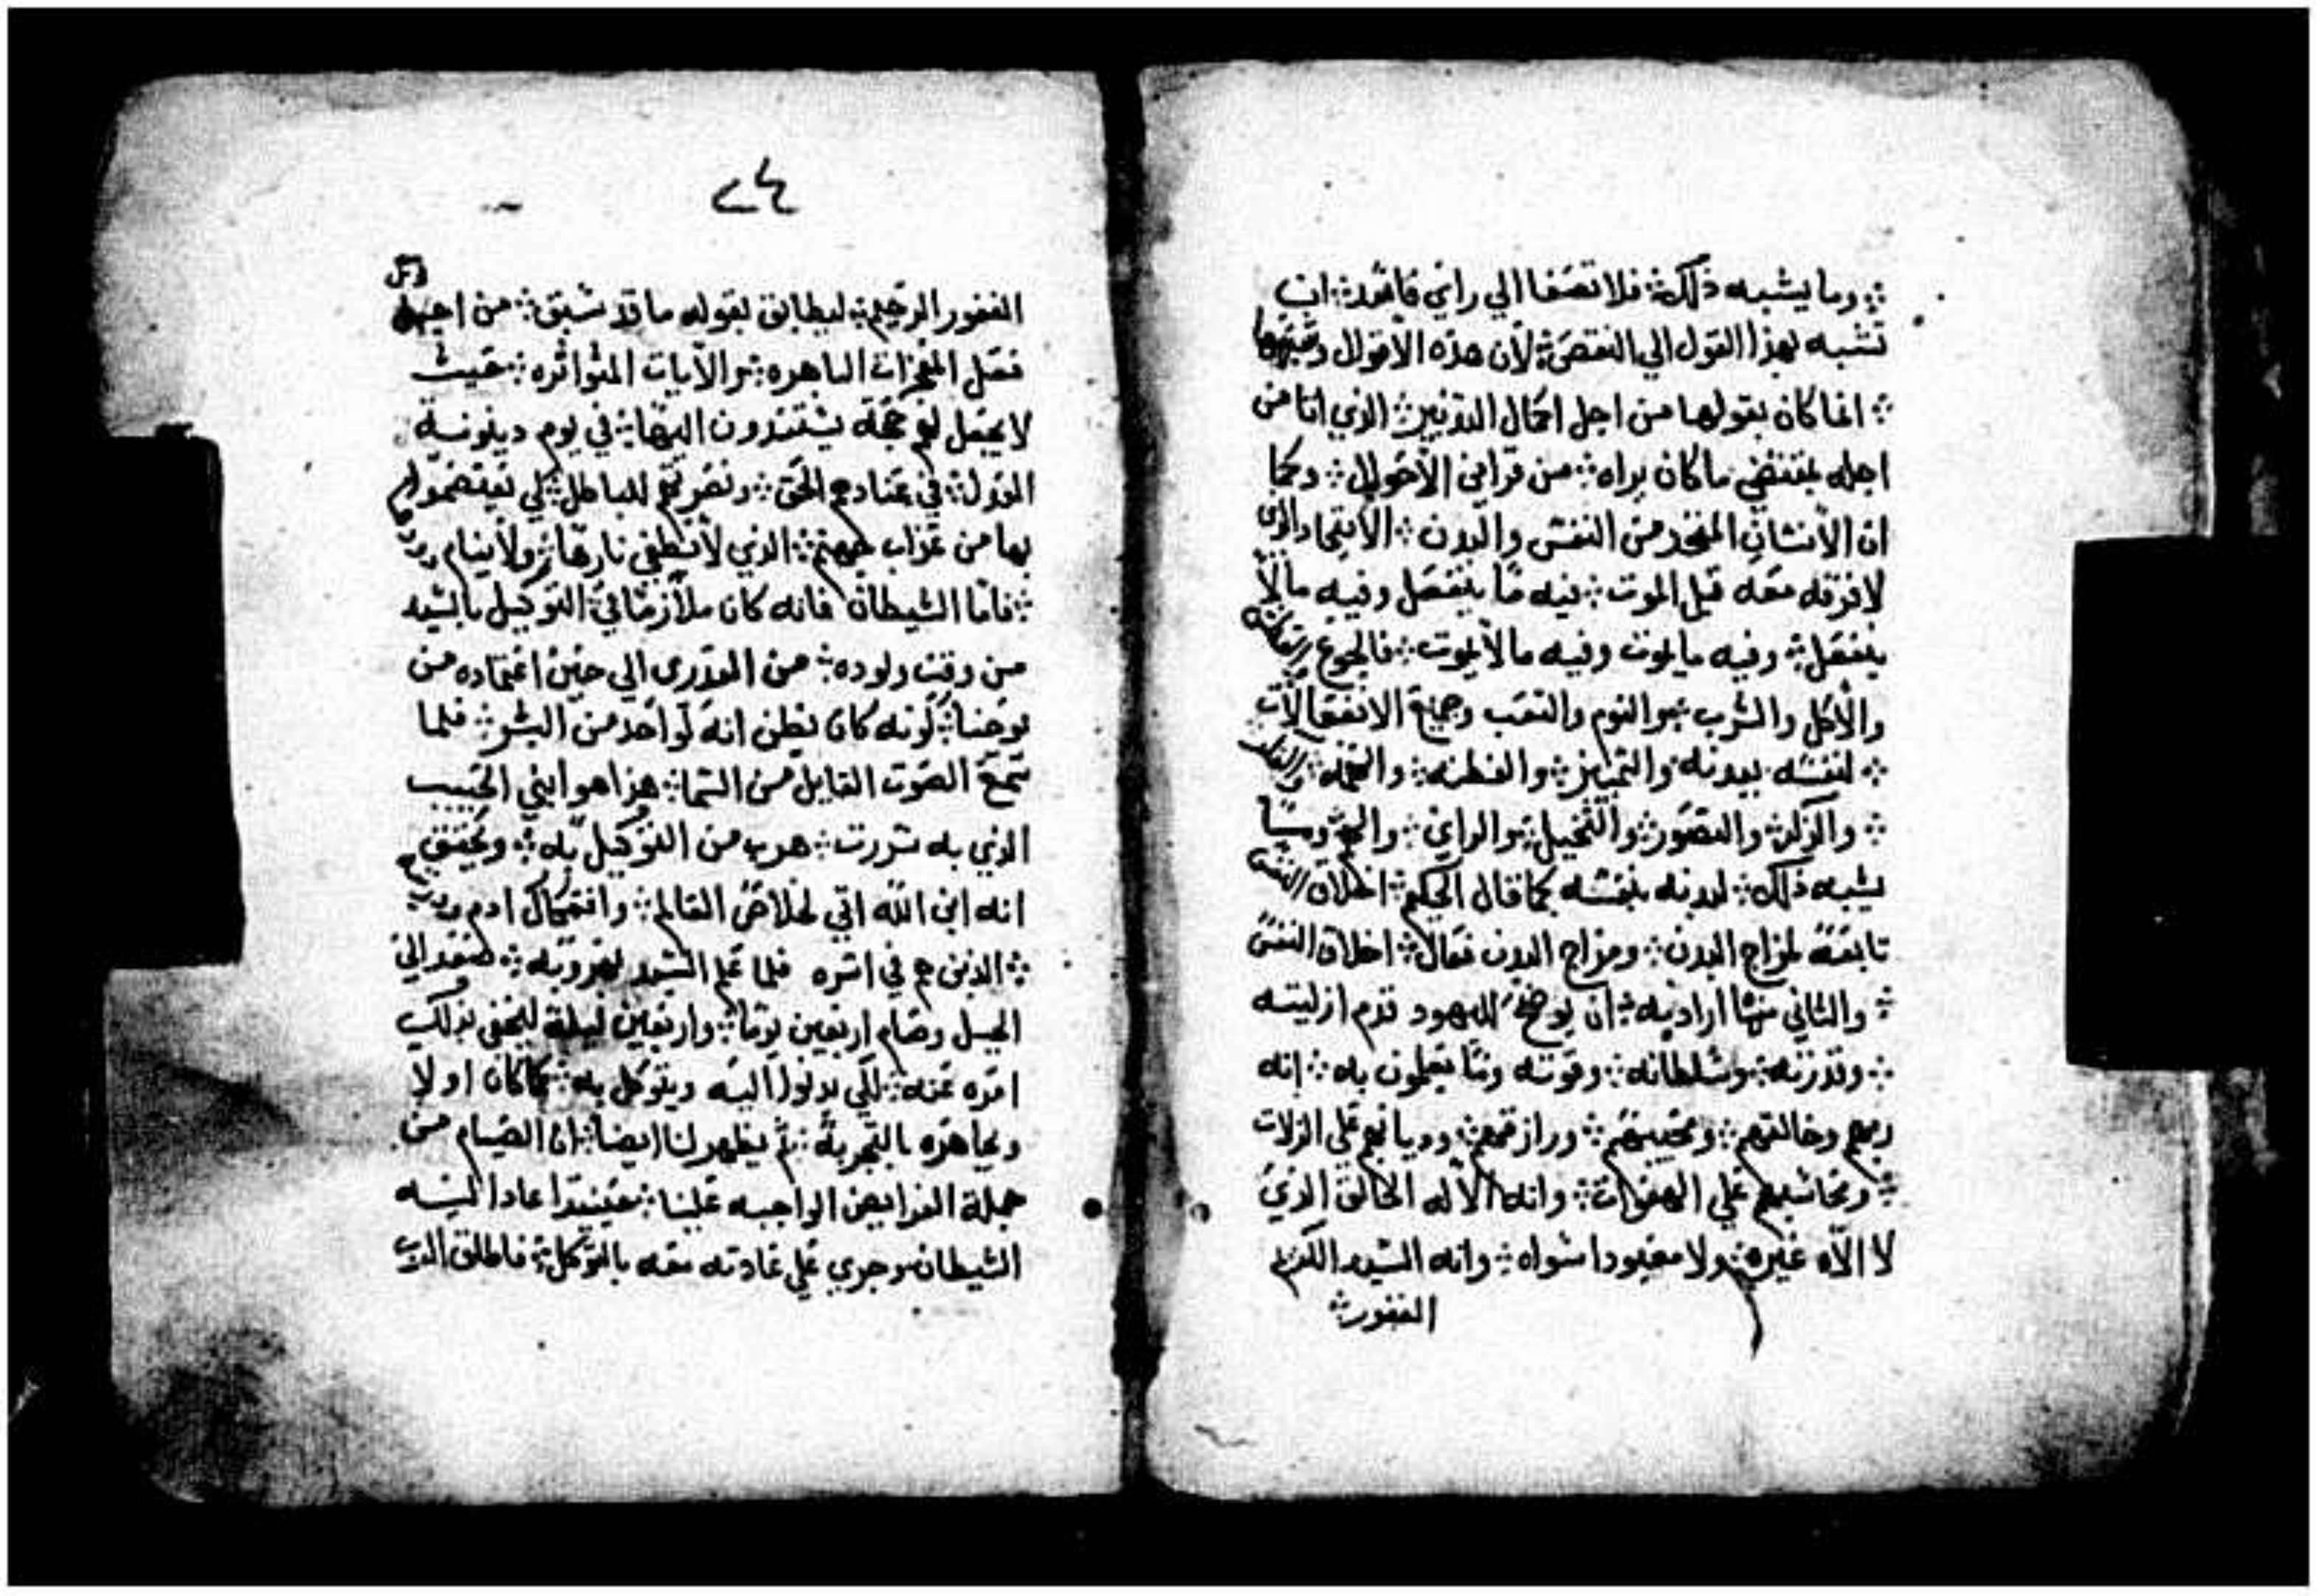 ؞ وما يشبه ذلك ؞ فلا تصغا الي راي فاسد ؞ ان
تشبه بهذا القول الي النقص ؞ لان هذه الاقوال وغيرها
؞ انما كان يقولها من اجل اكمال التدبير ؞ الذي اتا من
اجله بمقتضي ما كان يراه ؞ من قراين الاحوال ؞ وكما
ان الانسان المتحد من النفس والبدن ؞ الاتحاد الذي
لا فرقه معه قبل الموت ؞ فيه ما ينفعل وفيه ما لا
ينفعل ؞ وفيه ما يموت وفيه ما لا يموت ؞ فالجوع والعطش
والاكل والشرب ؞ والنوم والتعب وجميع الانفعالات
؞ لنفسه ببدنه والتمييز ؞ والفطنه ؞ والفكر
؞ والذكر ؞ والتصور ؞ والتخيل ؞ والراي ؞
يشبه ذلك ؞ لبدنه بنفسه كما قال الحكيم ؞ اخلاق النفس
تابعة لمزاج البدن ؞ ومزاج البدن فعال ؞ اخلاق النفس
؞ والثاني منها اراد به ؞ ان يوضح لليهود قدم ازليته
؞ وقدرته ؞ وسلطانه ؞ وقوته وما يعلمون به ؞ انه
ربهم وخالقهم ؞ ومحييهم ؞ ورازقهم ؞ وديانهم علي الزلات
؞ ومحاسبهم علي الهفوات ؞ وانه الاله الخالق الذي
لا اله غيره ؞ ولا معبودا سواه ؞ وانه السيد الكريم
الغفور ؞
٢٤
الغفور الرحيم ؞ ليطابق بقوله ما قد سبق ؞ من اجل
فعل المعجزات الباهره ؞ والايات المتواتره ؞ حيث
لا يجعل لهم حجة يستندون اليها ؞ في يوم دينونية
العدل ؞ في عنادهم الحق ؞ ونصرتهم للباطل ؞ لكي يعتصموا
بها من عذاب جهنم ؞ الذي لا تنطفي نارها ؞ ولا ينام دودها
؞ فاما الشيطان فانه كان ملازما في التوكيل بالسيد
من وقت ولوده ؞ من العذري الي حين اعتماده من
يوحنا ؞ كونه كان يظن انه كواحد من البشر ؞ فلما
سمع الصوت القايل من السما ؞ هذا هو ابني الحبيب
الذي به سررت ؞ هرب من التوكيل به ؞ وتحقق
انه ابن الله اتي لخلاص العالم ؞ وافتكاك ادم وذريته
؞ الذين هم في اسره فلما علم السيد بهروبه ؞ صعد الي
الجبل وصام اربعين يوما ؞ واربعين ليلة ليخفي بذلك
امره عنه ؞ لكي يدنوا اليه ويتوكل به ؞ كما كان اولا
ويجاهره بالتجربة ؞ ثم يظهر لنا ايضا ؞ ان الصيام من
جملة الفرايض الواجبه علينا ؞ حينيذا عاد اليه
الشيطان وجري علي عادته معه بالتوكل ؞ فاطلق الرب